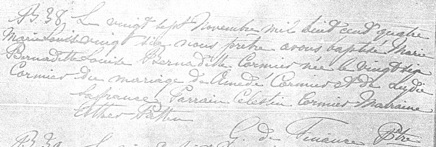 B. 38. Le vingt sept Novembre mil huit cent quatre
Marie Louise vingt dix nous prêtre avons baptisé Marie
Bernadette Louise Bernadette Cormier née le vingt six
Cormier du mariage de Amedé Cormier et de Lydie
Lafrance Parrain Célestin Cormier Marraine
Esther
G. de Finance Ptre
B. 39.